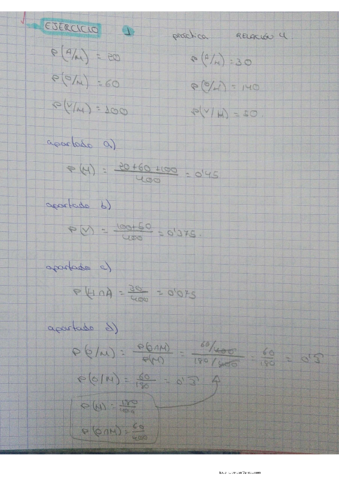 EJERCICIO 1 práctica relación 4
P(A/M) = 20 P(A/H) = 30
P(O/M) = 60 P(O/H) = 140
P(V/M) = 100 P(V/H) = 50
apartado a)
P(M) = 20+60+100 / 400 = 0'45
apartado b)
P(V) = 100+50 / 400 = 0'375.
apartado c)
P(H∩A) = 30 / 400 = 0'075
apartado d)
P(O/M) = P(O∩M) / P(M) = 60/400 / 180/400 = 60 / 180 = 0'3̂
P(O/M) = 60 / 180 = 0'3̂
P(M) = 180 / 400
P(O∩M) = 60 / 400